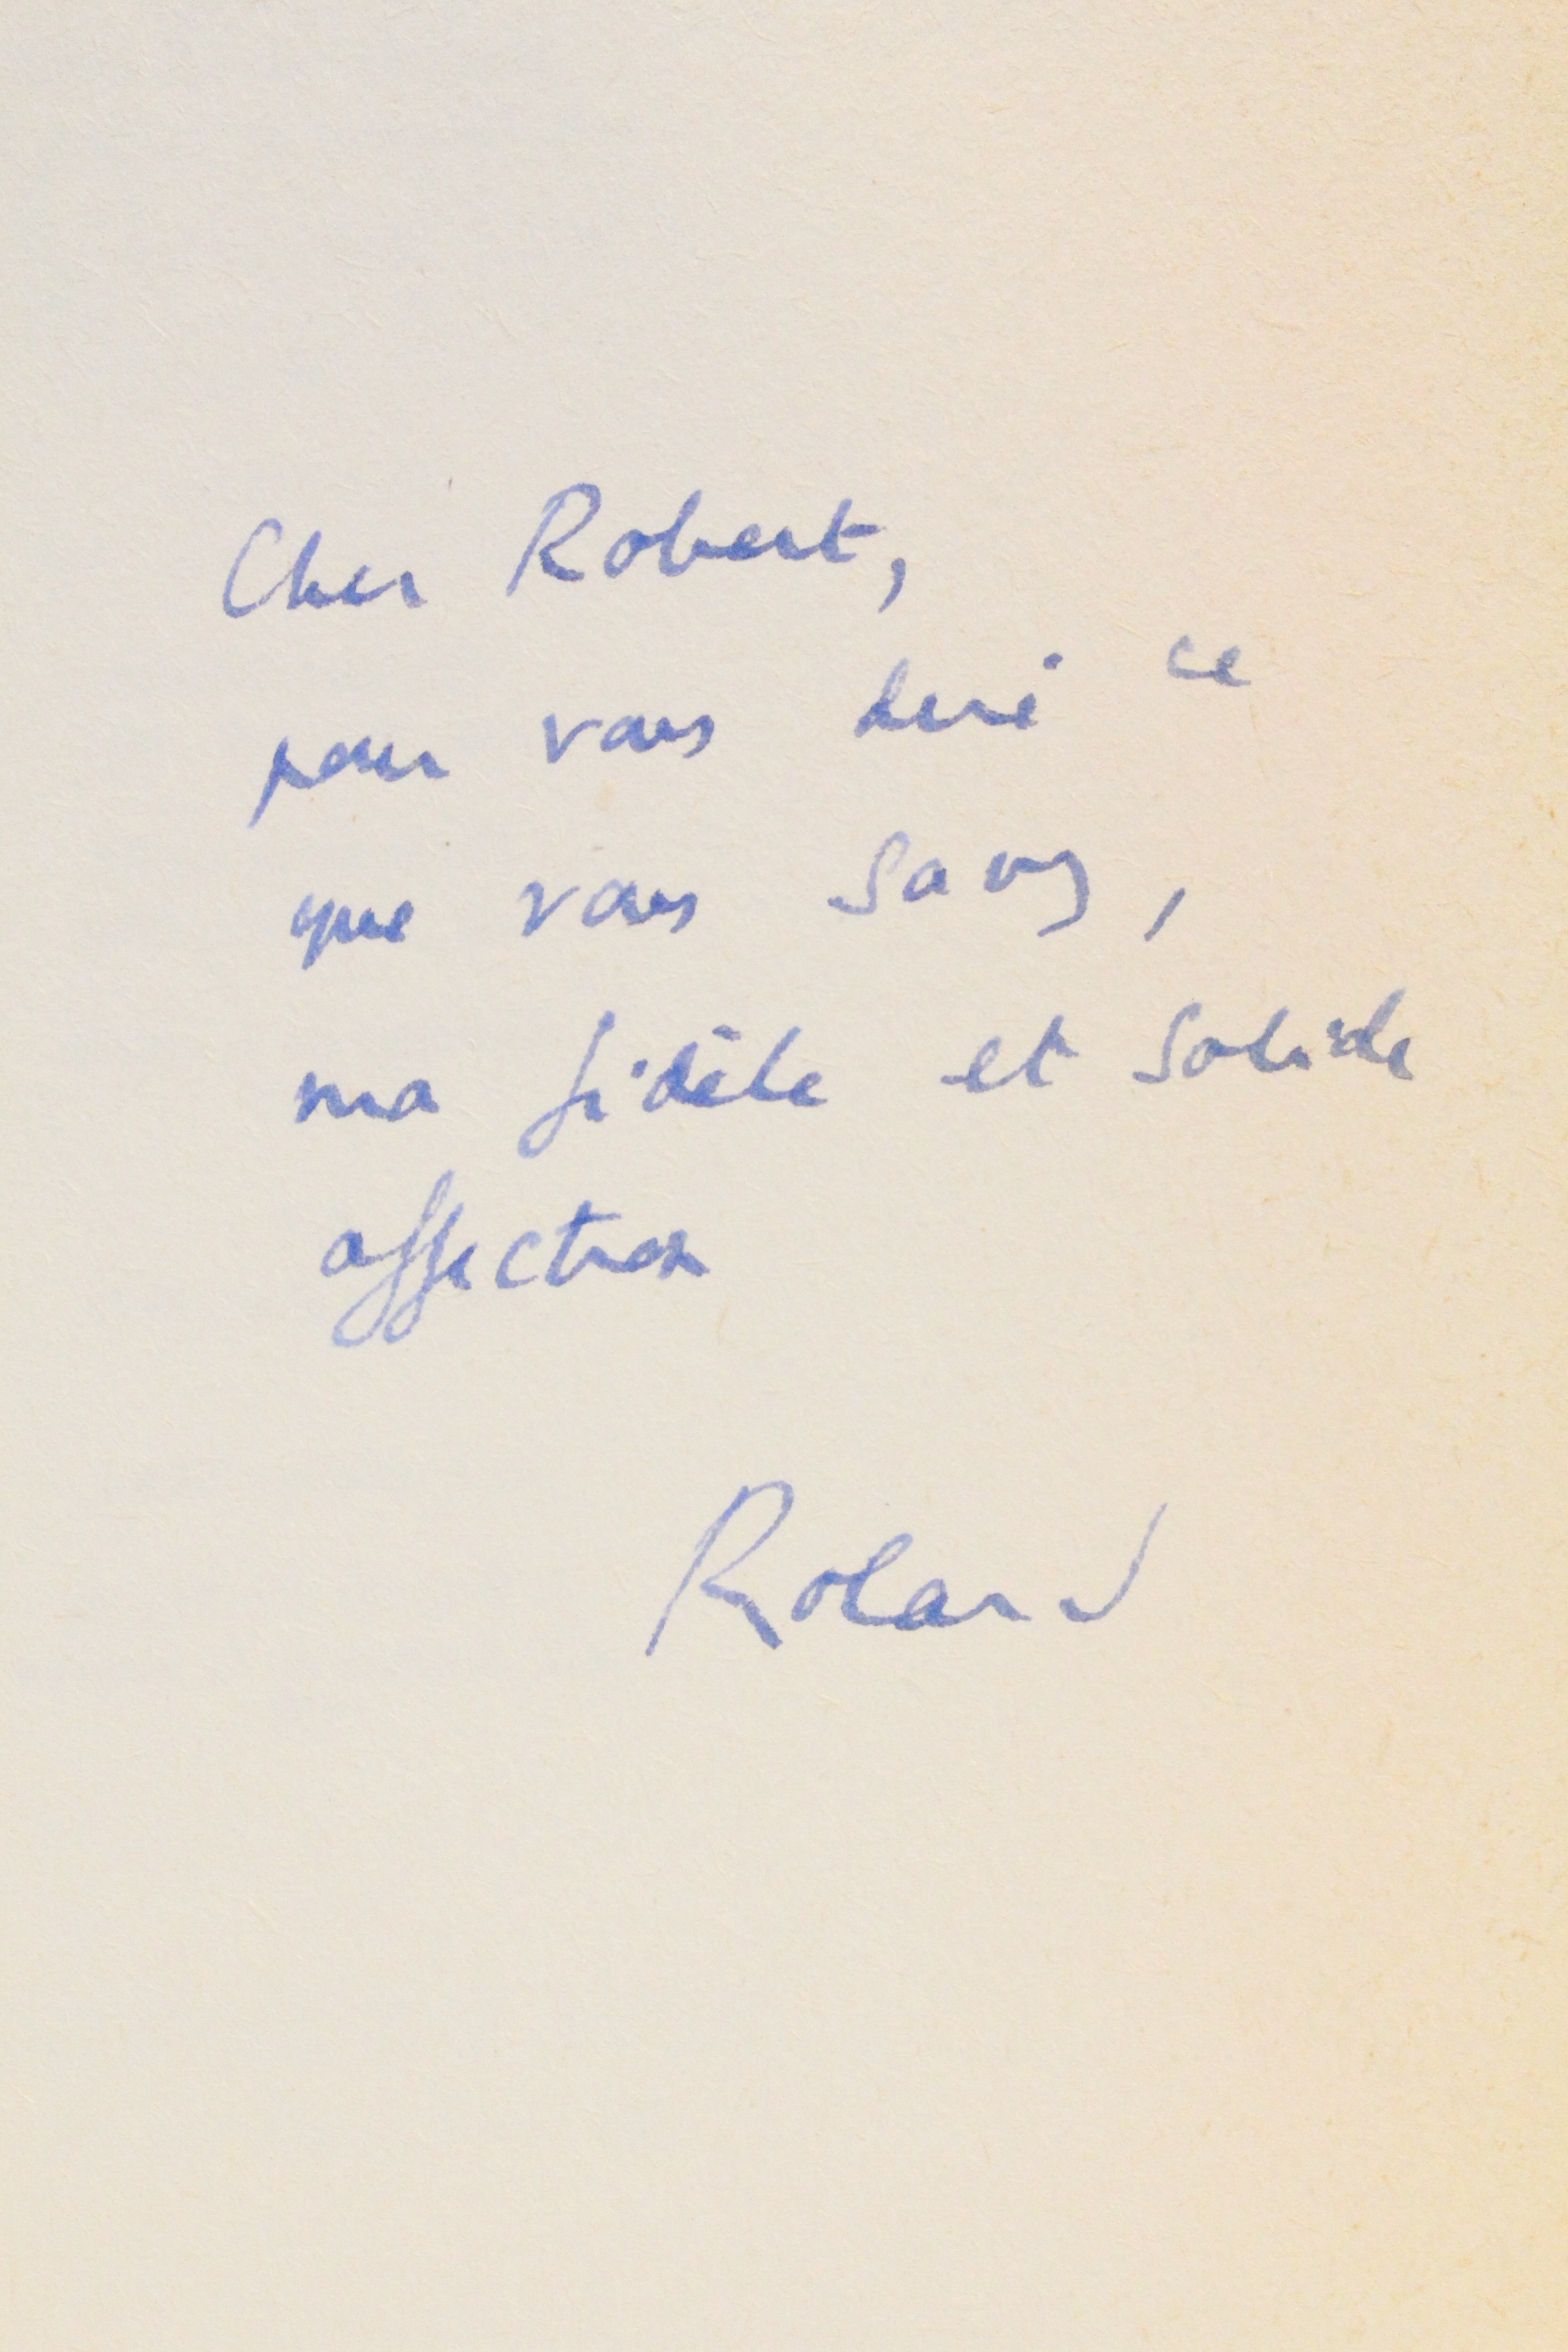 Cher Robert,
pour vous dire ce
que vous savez,
ma fidèle et solide
affection
Roland